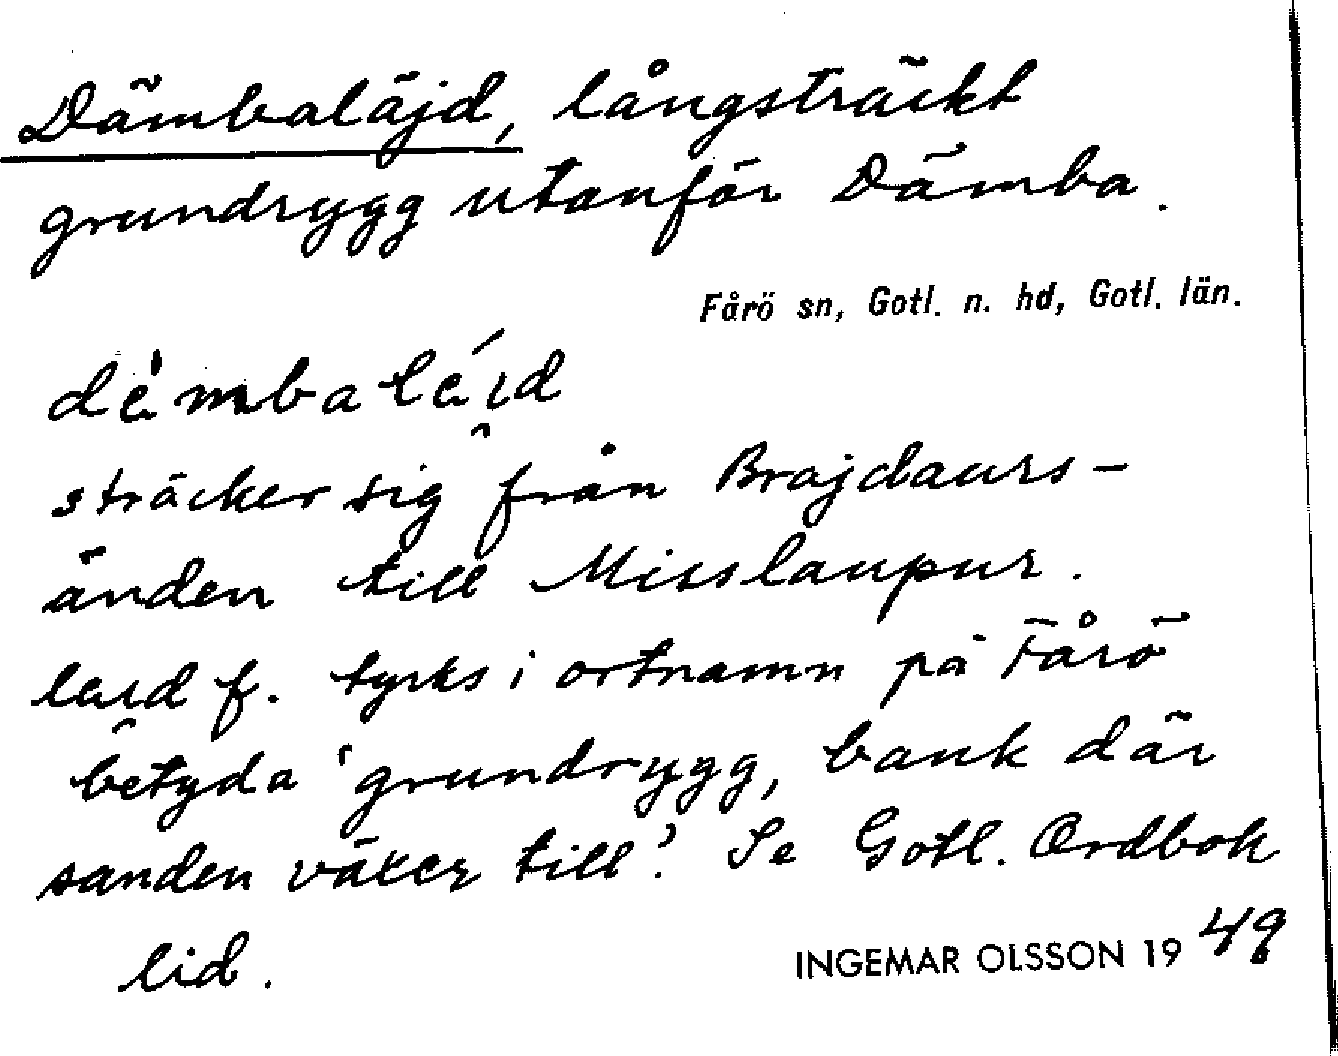 Dämbaläjd, långsträckt
grundrygg utanför Dämba.
Fårö sn, Gotl. n. hd, Gotl. län.
sträcker sig från Brajdaurs-
änden till Misslaupur.
f. tycks i ortnamn på Fårö
betyda 'grundrygg, bank där
sanden växer till'. Se Gotl. Ordbok
lid.
INGEMAR OLSSON 1949